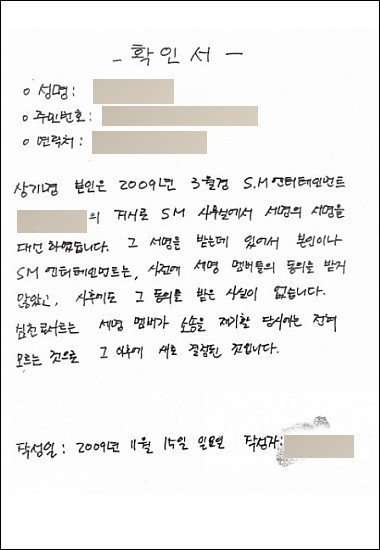 - 확인서 -
o 성명:
o 주민번호:
o 연락처:
상기명 본인은 2009년 3월경 S.M엔터테인먼트
의 지시로 SM 사무실에서 세명의 서명을
대신 하였습니다. 그 서명을 받는데 있어서 본인이나
SM엔터테인먼트는, 사전에 세명 멤버들의 동의를 받지
않았고, 사후에도 그 동의를 받은 사실이 없습니다.
심천콘서트는 세명 멤버가 소송을 제기할 당시에는 전혀
모르는 것으로 그 이후에 새로 결정된 것입니다.
작성일: 2009년 11월 15일 일요일 작성자: